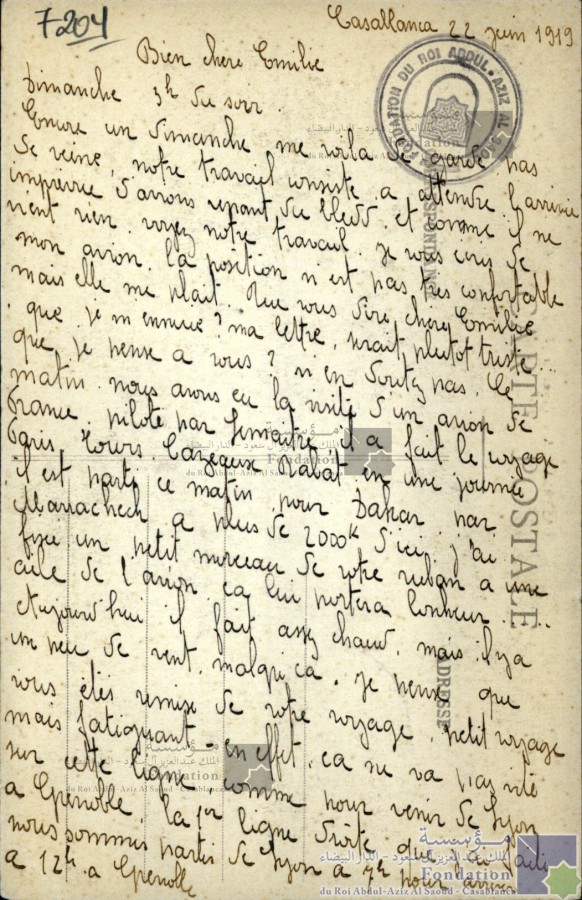 7204
Casablanca 22 juin 1919
Bien chère Emilie
Dimanche 3h du soir.
Encore un dimanche me voila de garde pas
de veine, notre travail consiste a attendre l'arrivée
imprevue d'avions venant du bledd et comme il ne
vient rien voyez notre travail. Je vous ecris de
mon avion. la position n'est pas très confortable
mais elle me plait. Que vous dire, chère Emilie
que je m'ennuie? ma lettre, serait plutot triste
que je pense a vous? n'en doutez pas. Ce
matin nous avons eu la visite d'un avion de
France, piloté par Lemaitre, il a fait le voyage
Paris, Tours Cazeaux Rabat en une journée
il est parti ce matin pour Dakar par
Marrachech a plus de 2000k d'ici, j'ai
fixé un petit morceau de votre ruban a une
aile de l'avion ça lui portera bonheur...
Aujourd'hui il fait assez chaud, mais il y a
un peu de vent, malgré ça. Je pense que
vous etes remise de votre voyage, petit voyage
mais fatiguant - en effet, ça ne va pas vite
sur cette ligne comme pour venir de Lyon
a Grenoble. la 1er ligne droite que
nous sommes partis de Lyon a 7h pour arriver
a 12h a Grenoble
CARTE POSTALE
CORRESPONDANCE
ADRESSE
FONDATION DU ROI ABDUL-AZIZ AL SAOUD
مؤسسة
الملك عبدالعزيز آل سعود - الدار البيضاء
Fondation
du Roi Abdul-Aziz Al Saoud - Casablanca